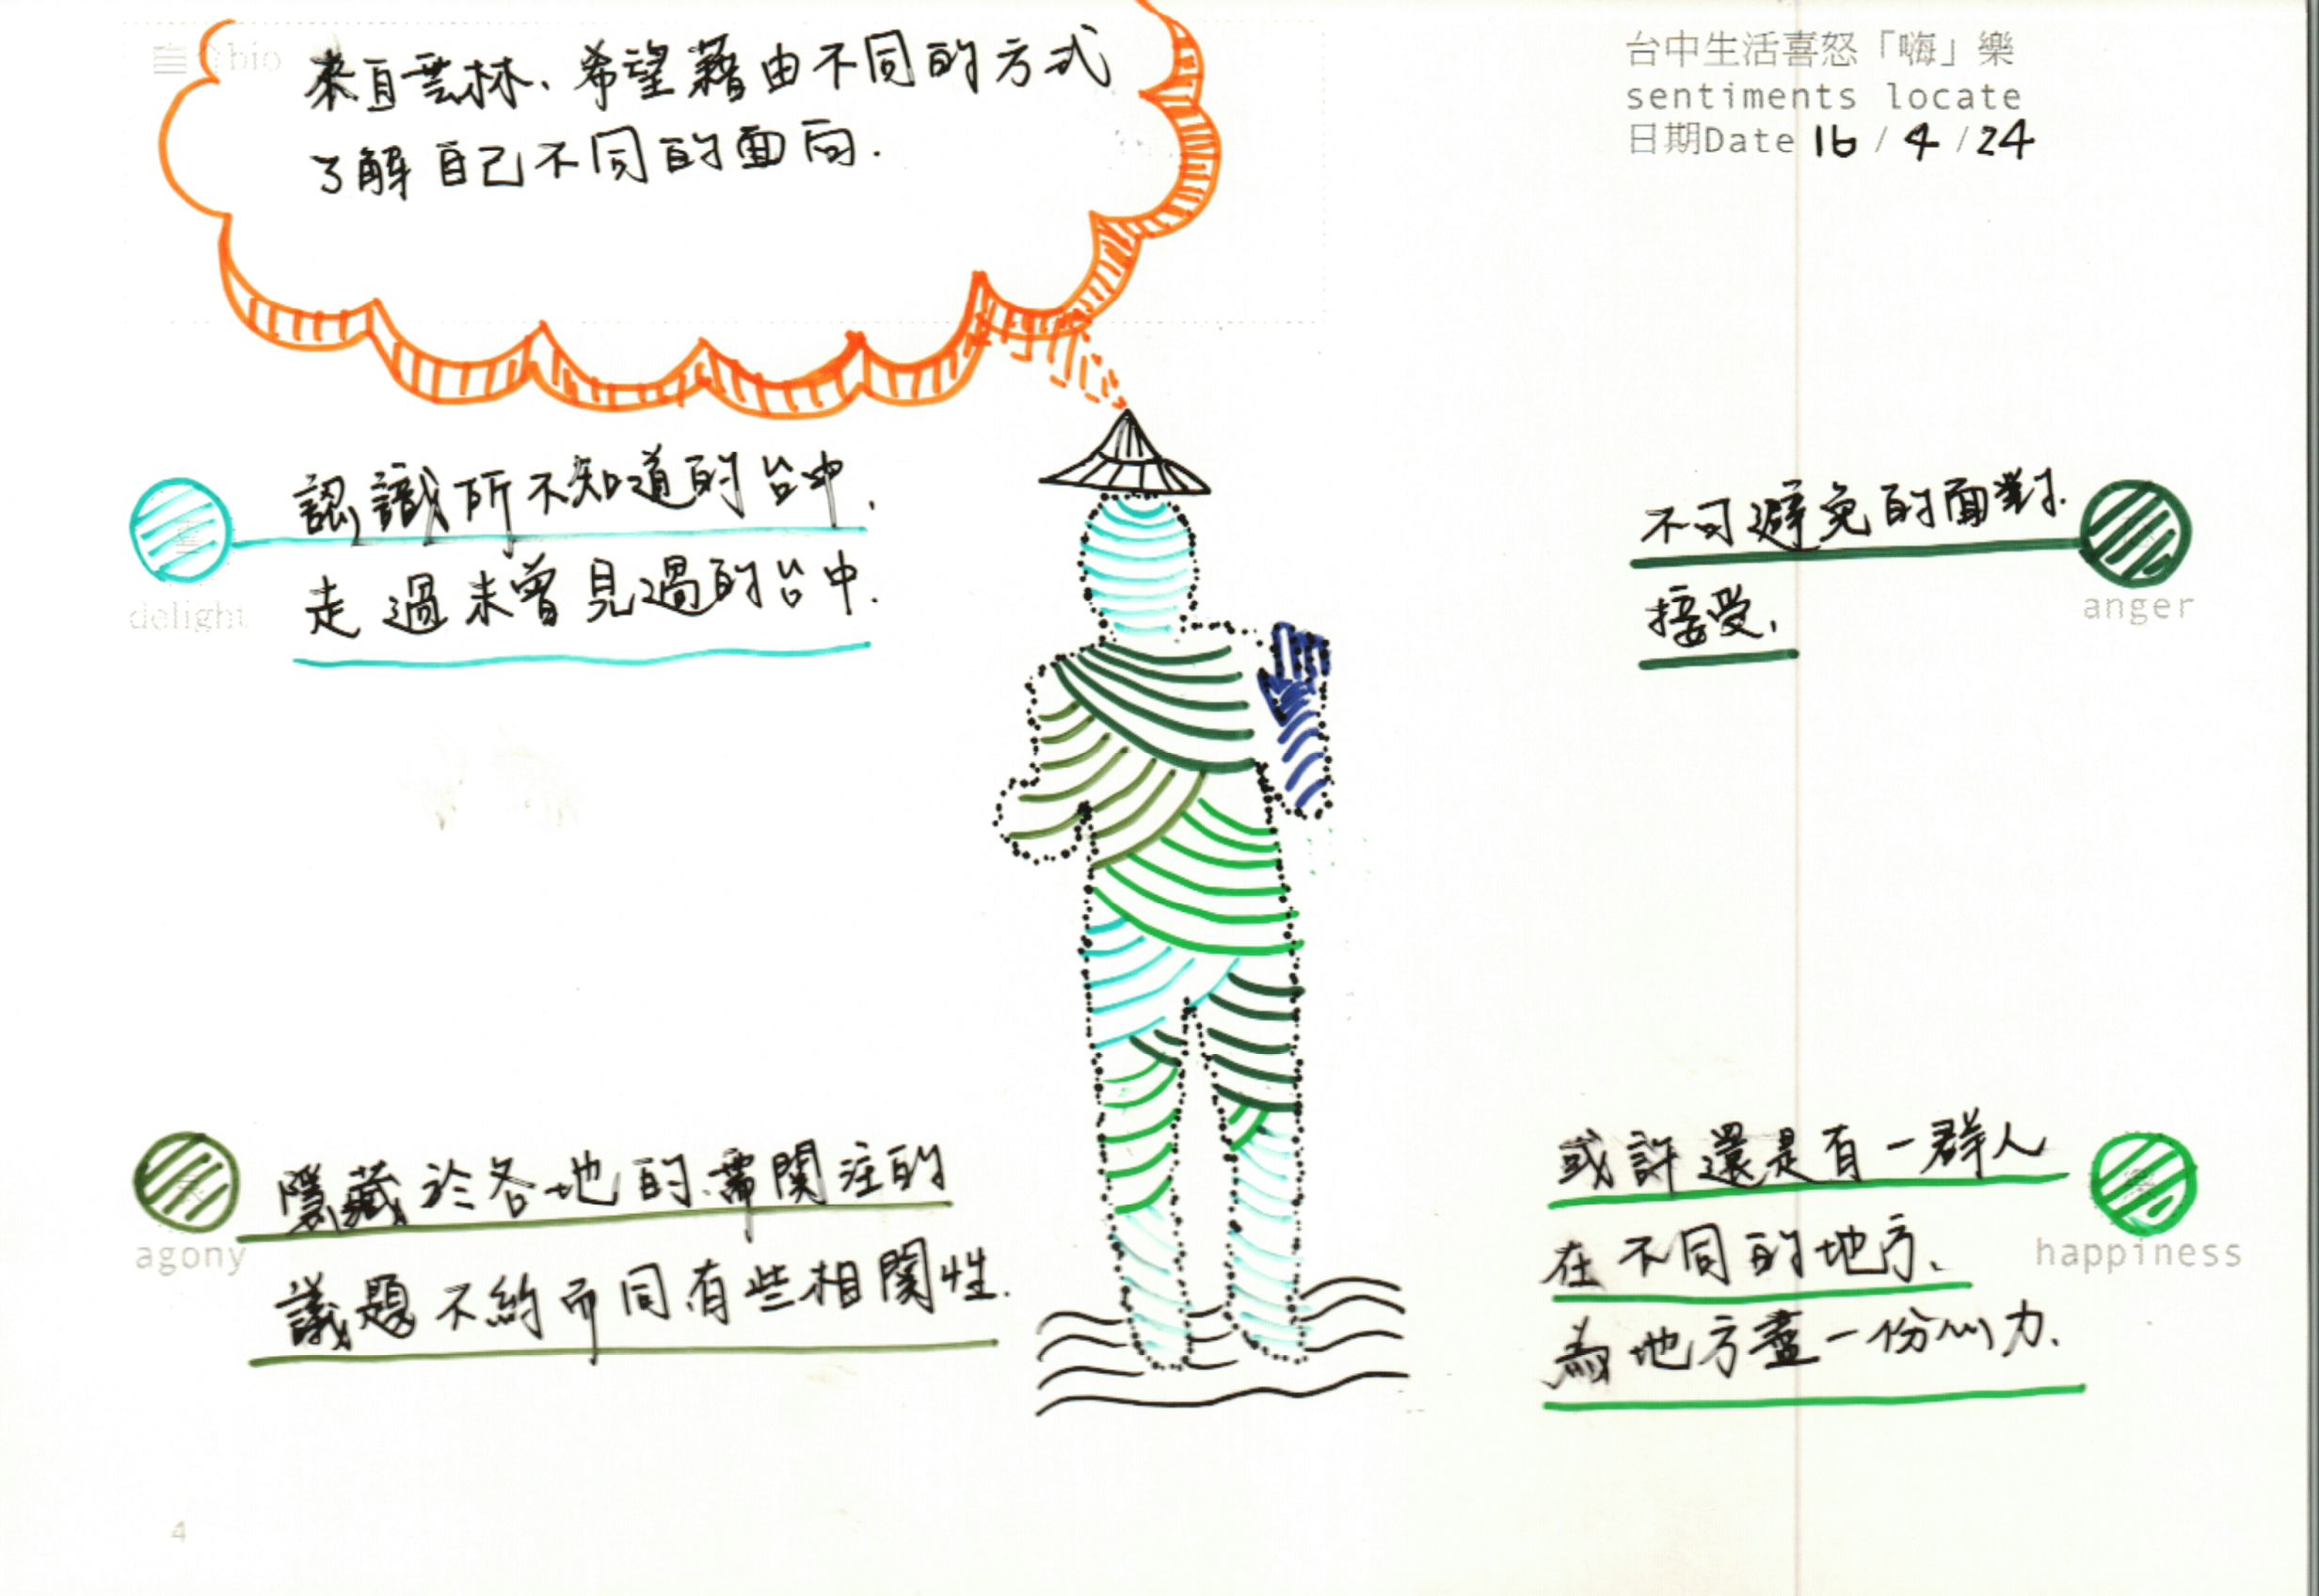 bio
來自雲林、希望藉由不同的方式
了解自己不同的面向.
台中生活喜怒「嗨」樂
sentiments locate
日期Date 16 / 4 / 24
認識所不知道的台中,
走過未曾見過的台中.
delight
不可避免的面對.
接受,
anger
隱藏於各地的、需関注的
議題不約而同有些相関性.
agony
或許還是有一群人
在不同的地方、
為地方盡一份心力.
happiness
4